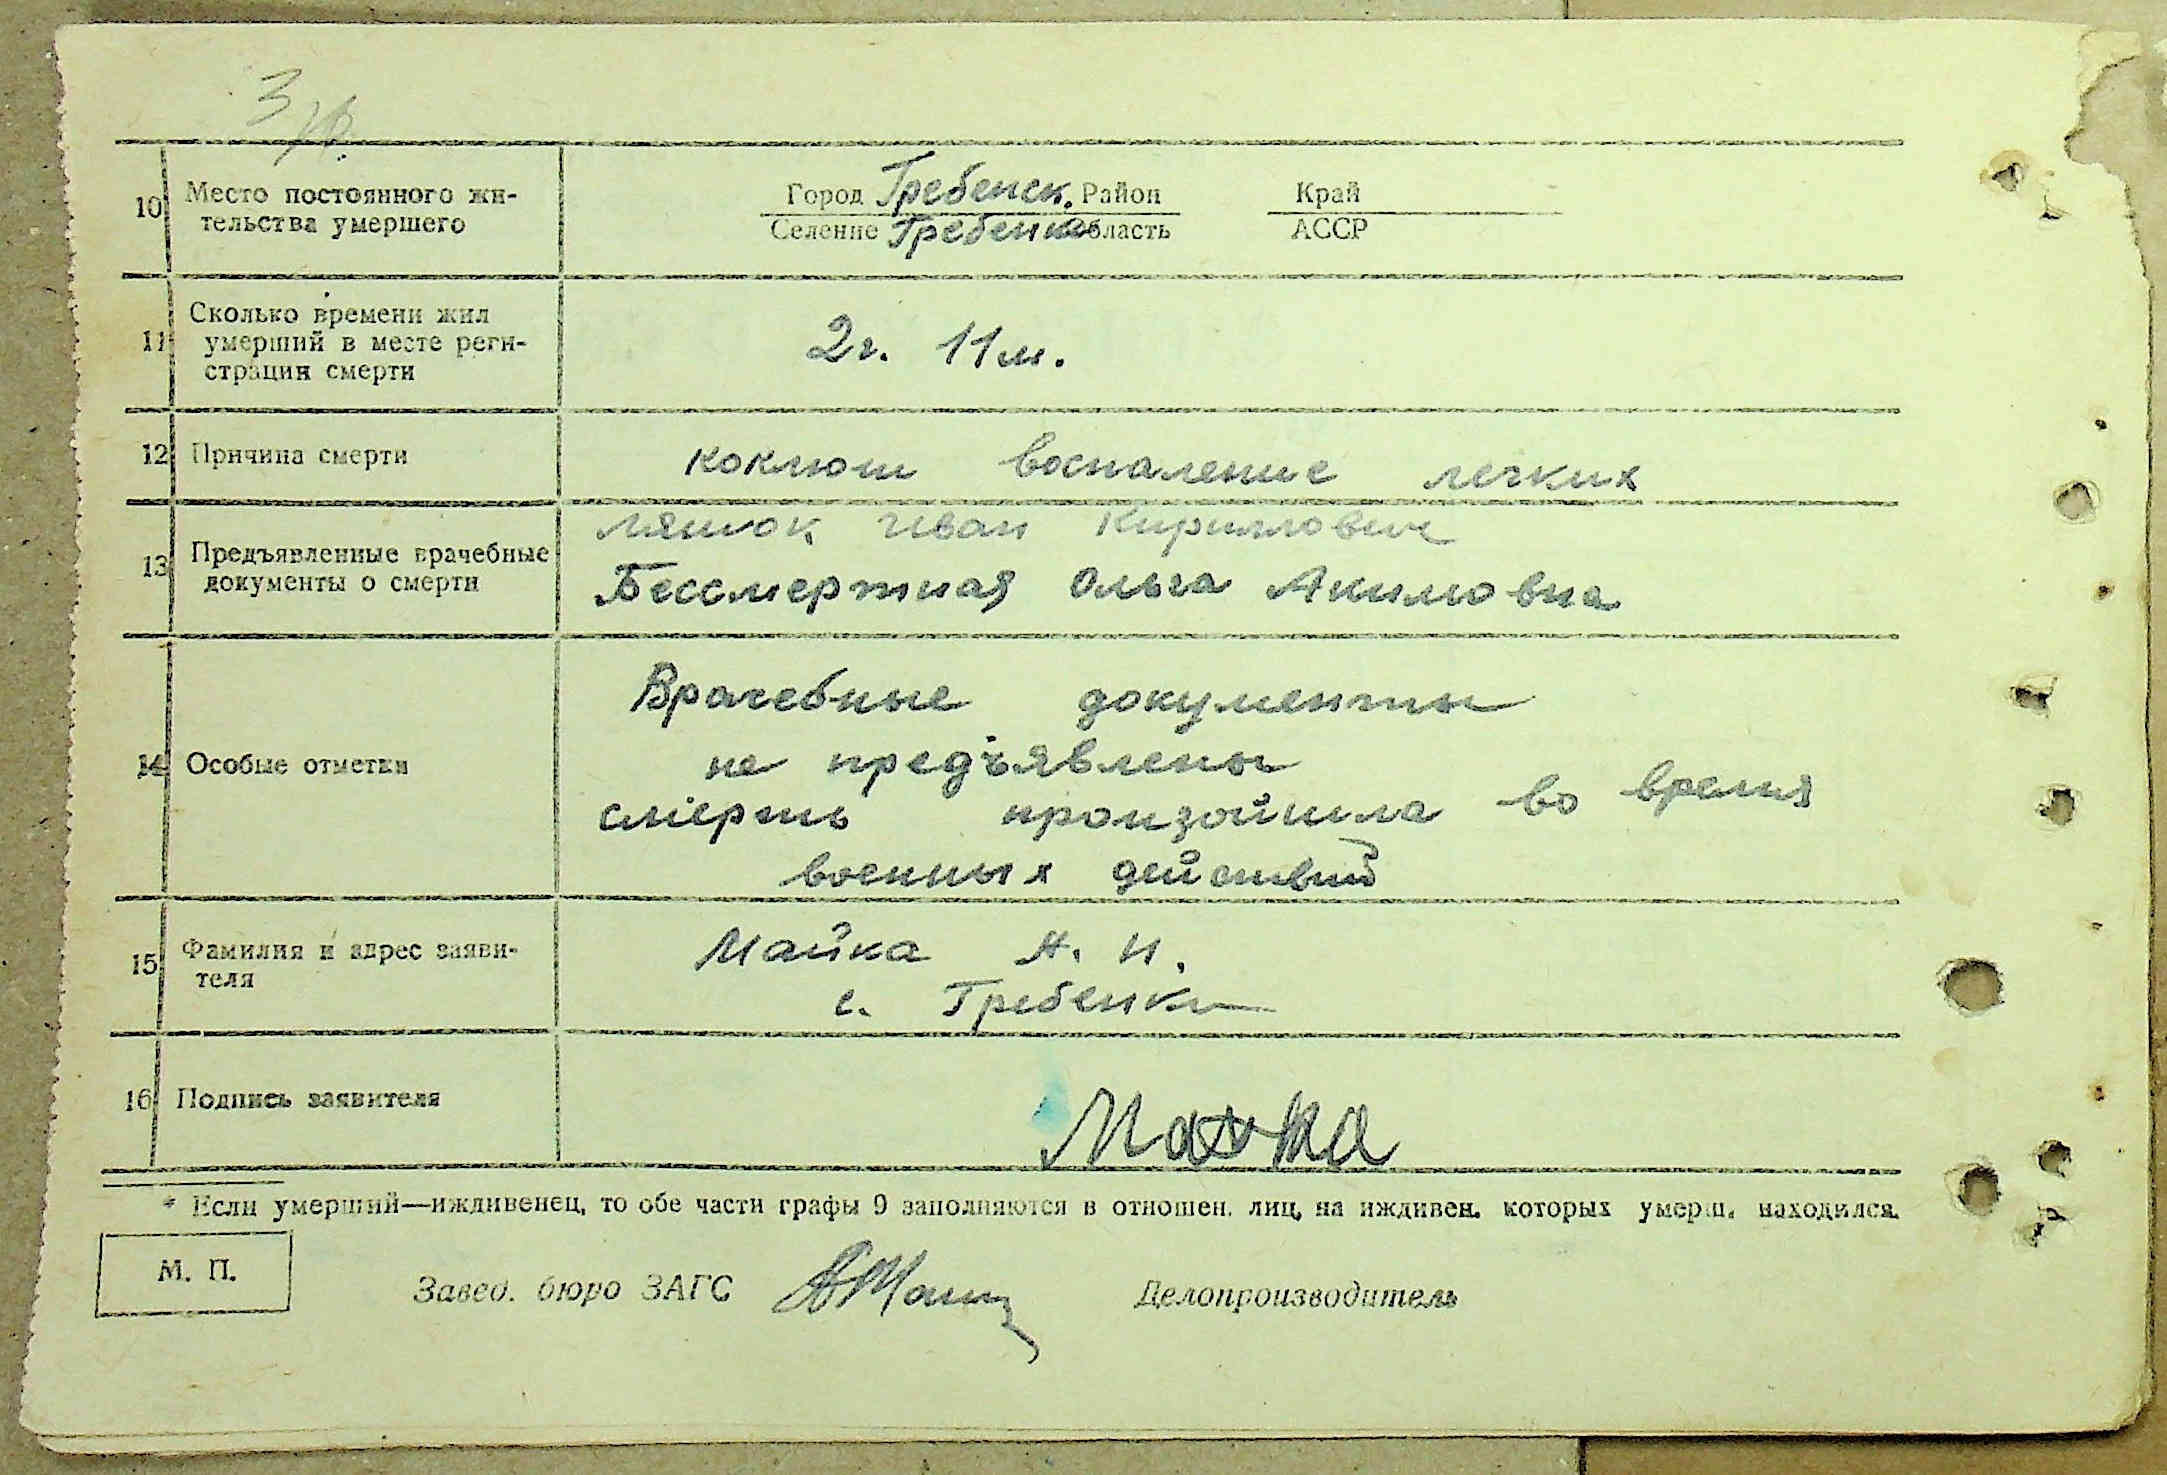 3
10 Место постоянного жи-
тельства умершего
Город Гребенск. Район Край
Селение Гребенки область АССР
11 Сколько времени жил
умерший в месте реги-
страции смерти
2г. 11м.
12 Причина смерти
коклюш воспаление легких
13 Предъявленные врачебные
документы о смерти
Ляшок Иван Кириллович
Бессмертная Ольга Акимовна
14 Особые отметки
Врачебные документы
не предъявлены
смерть произойшла во время
военных действий
15 Фамилия и адрес заяви-
теля
Майка А. И.
с. Гребенки
16 Подпись заявителя
Майка
* Если умерший—иждивенец, то обе части графы 9 заполняются в отношен. лиц, на иждивен. которых умерш. находился.
М. П.
Завед. бюро ЗАГС Делопроизводитель